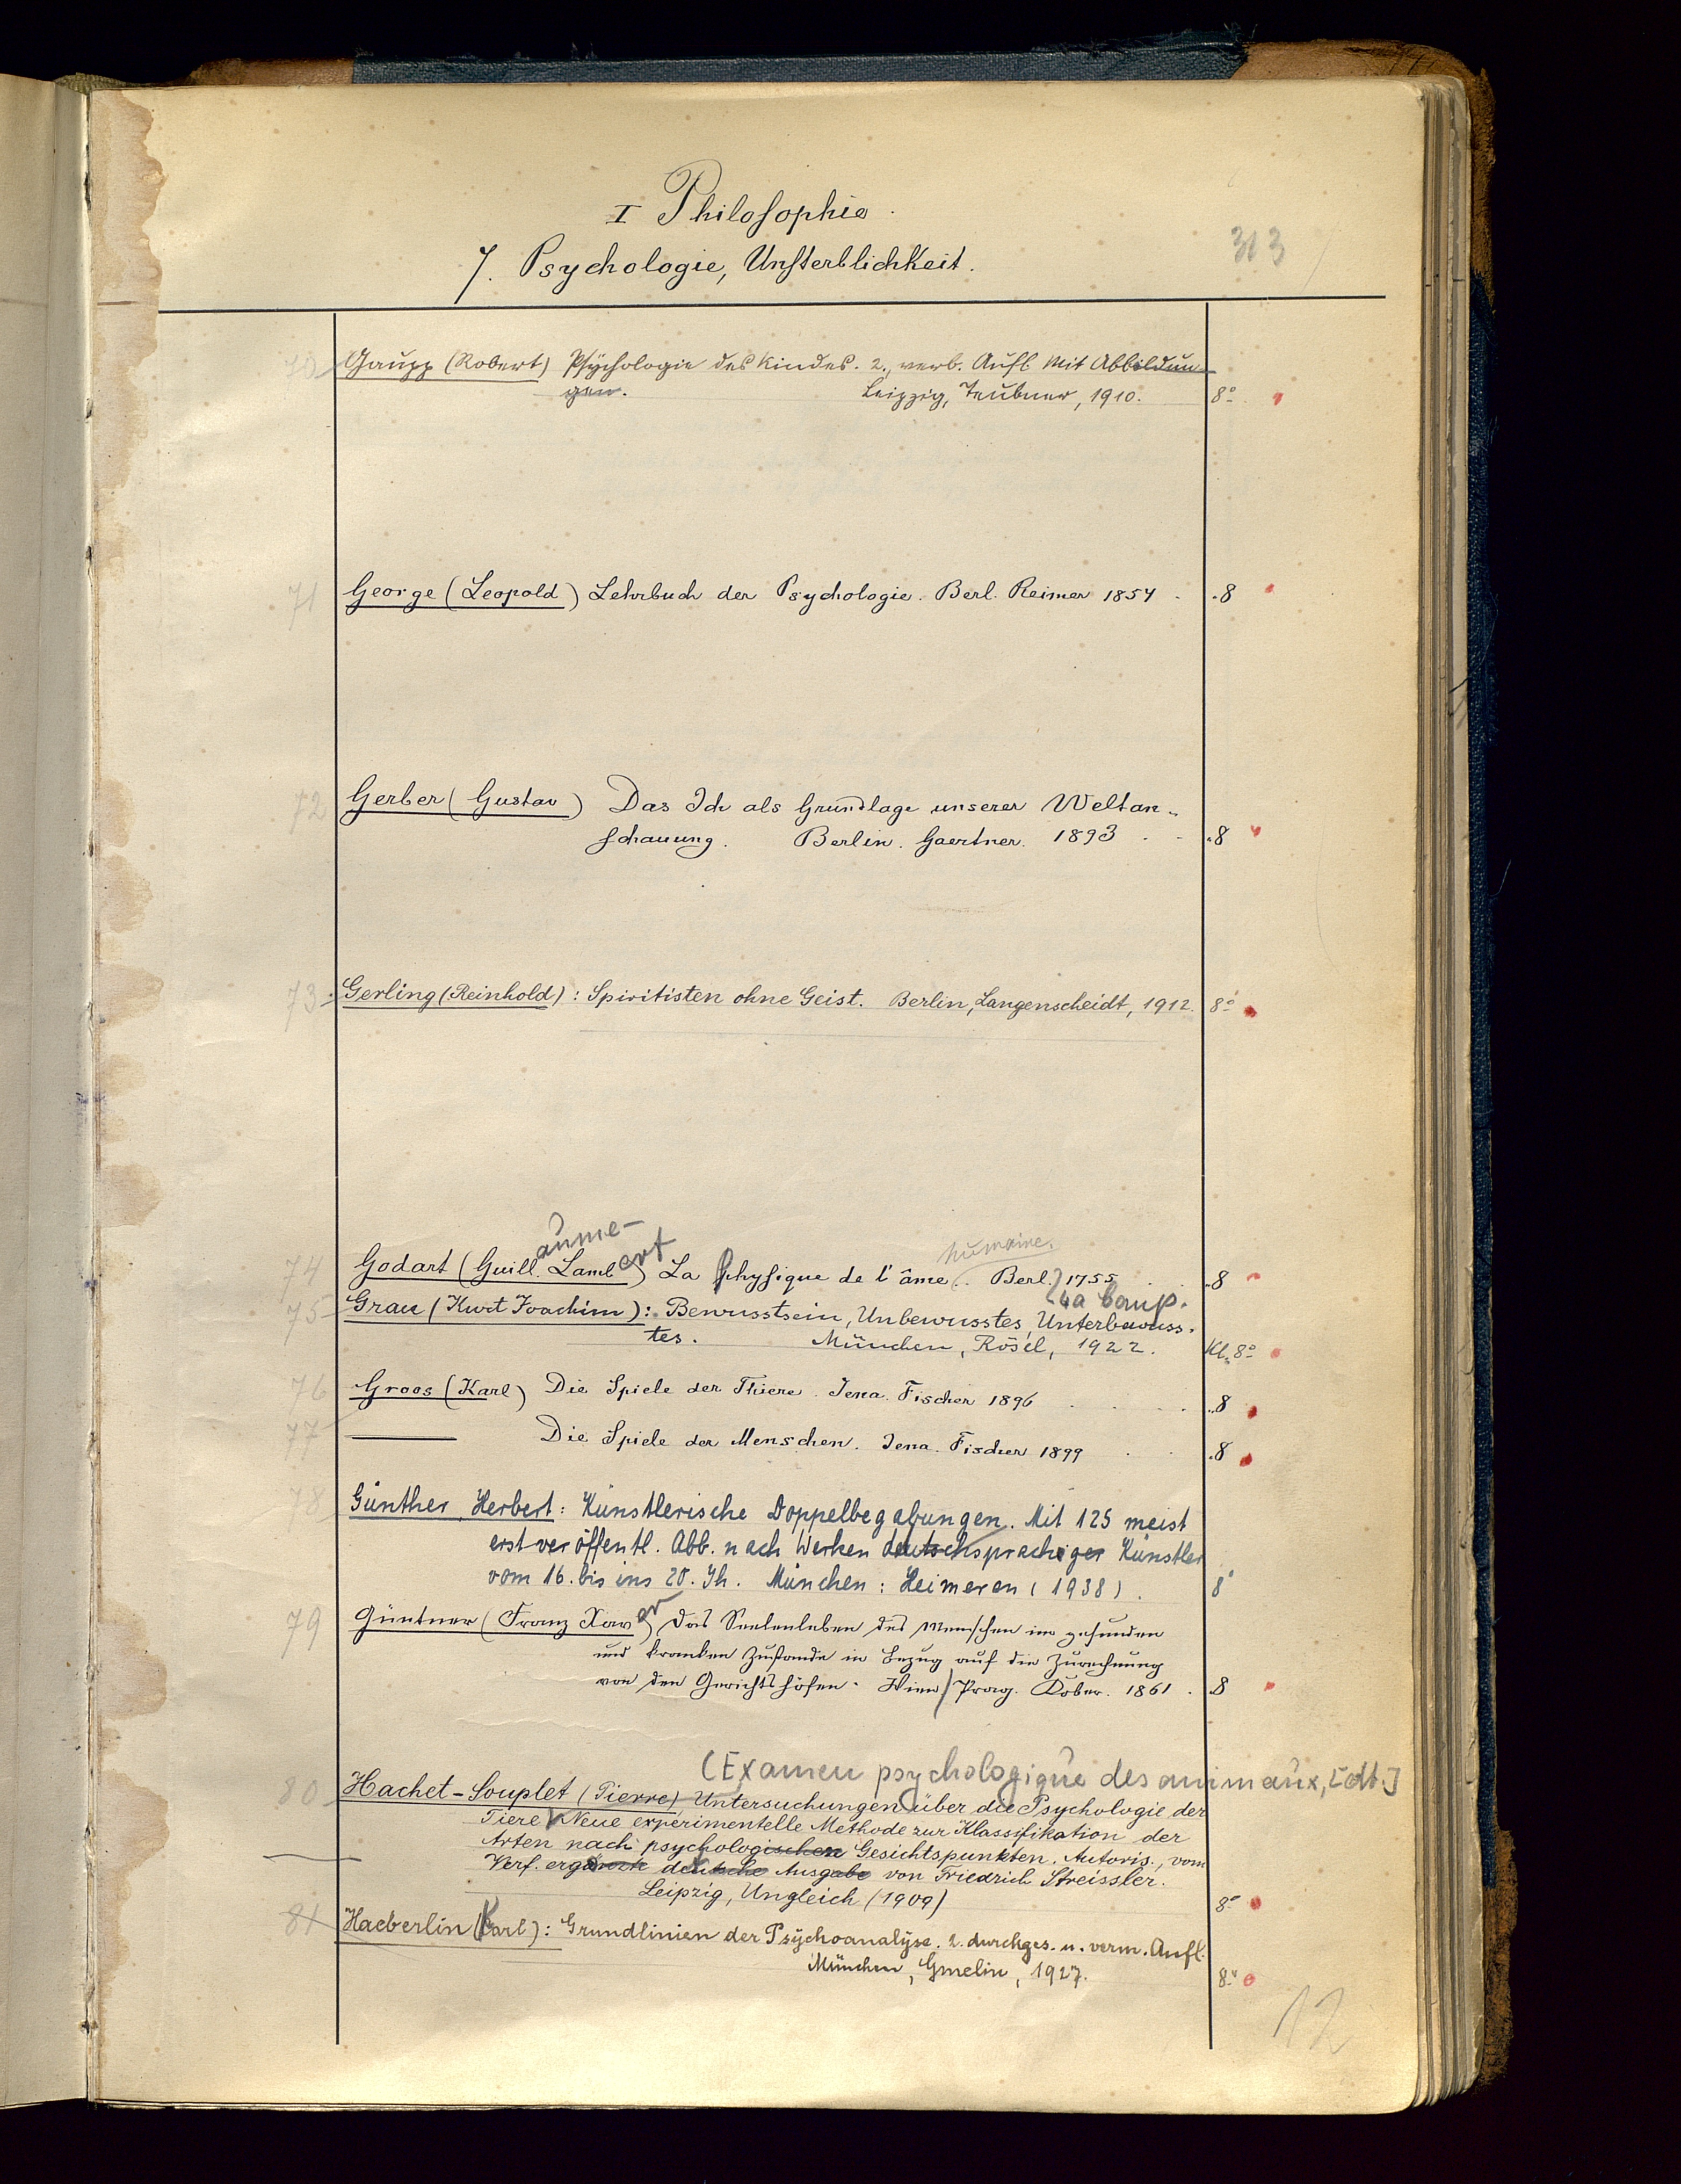 I Philosophie.
7. Psychologie, Unsterblichkeit.
313
70 Gaupp (Robert) Psychologie des Kindes. 2., verb. Aufl. Mit Abbildun-
gen. Leipzig, Teubner, 1910. 8°
71 George (Leopold) Lehrbuch der Psychologie. Berl. Reimer 1854 . . 8
72 Gerber (Gustav) Das Ich als Grundlage unserer Weltan-
schauung. Berlin. Gaertner. 1893 . . . 8
73 Gerling (Reinhold): Spiritisten ohne Geist. Berlin, Langenscheidt, 1912. 8°
aume-
74 Godart (Guill. Lambert) La physique de l'âme humaine. Berl. 1755 . . 8
75 Grau (Kurt Joachim): Bewusstsein, Unbewusstes, Unterbewuss-
tes. München, Rösl, 1922. Kl. 8°
76 Groos (Karl) Die Spiele der Thiere. Jena. Fischer 1896 . . . . 8
77 ——— Die Spiele der Menschen. Jena. Fischer 1899 . . . 8
78 Günther, Herbert: Künstlerische Doppelbegabungen. Mit 125 meist
erstveröffentl. Abb. nach Werken deutschsprachiger Künstler
vom 16. bis ins 20. Jh. München: Heimeran (1938). 8°
79 Güntner (Franz Xaver) Das Seelenleben des Menschen im gesunden
und kranken Zustande in Bezug auf die Zurechnung
von den Gerichtshöfen. Wien / Prag. Dober. 1861 . 8
(Examen psychologique des animaux, [dt.]
80 Hachet-Souplet (Pierre) Untersuchungen über die Psychologie der
Tiere Neue experimentelle Methode zur Klassifikation der
Arten nach psychologischen Gesichtspunkten. Autoris., vom
Verf. ergänzte deutsche Ausgabe von Friedrich Streissler.
Leipzig, Ungleich (1909) 8°
81 Haeberlin (Karl): Grundlinien der Psychoanalyse. 2. durchges. u. verm. Aufl.
München, Gmelin, 1927. 8°
12